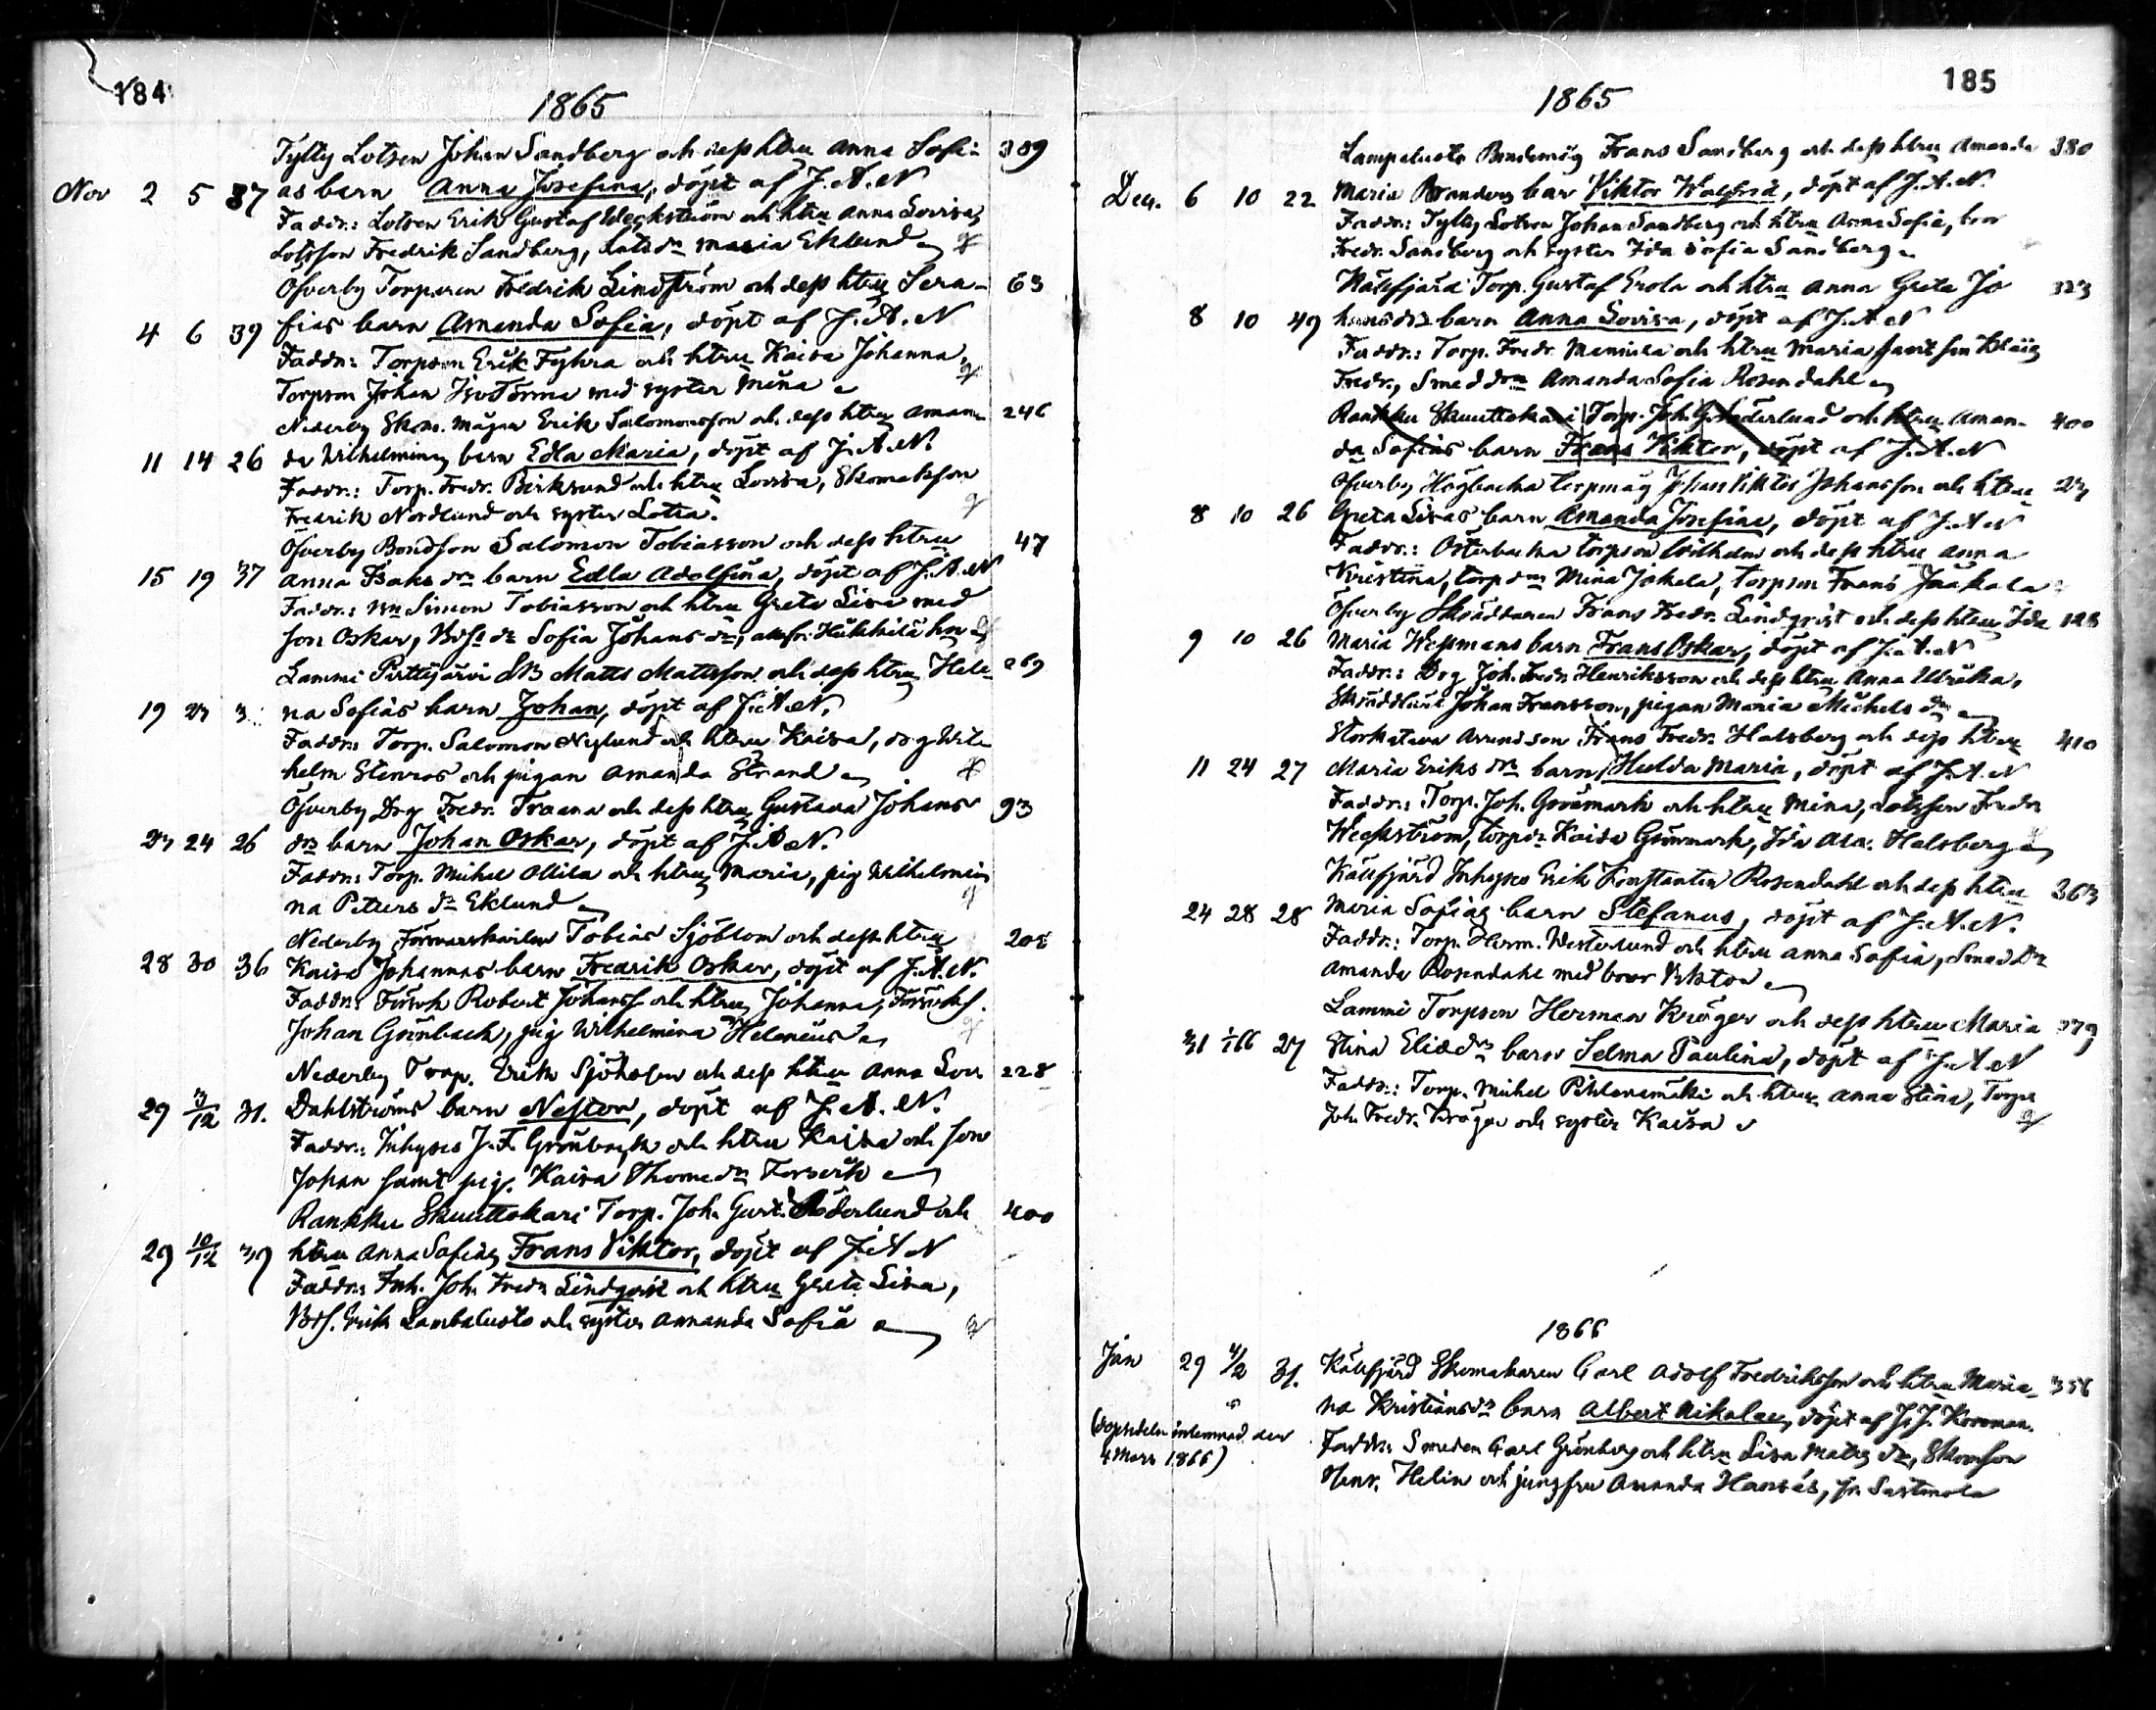 184
1865
Tytty Lotsen Johan Sandberg och dess htru Anna Sofi- 389
Nov 2 5 37 as barn Anna Josefina, döpt af J.A.N
Faddr.: Lotsen Erik Gustaf Weckström och htru Anna Lovisa,
Lotsson Fredrik Sandberg, Lotsdr Maria Eklund
Öfverby Torparen Fredrik Lindström och dess htru Sera- 63
4 6 39 fias barn Amanda Sofia, döpt af J.A.N
Faddr: Torpson Erik Fyhra och htru Kaisa Johanna,
Torpson Johan med syster Mina
Nederby Skom. mågen Erik Salomonsson och dess htru Aman- 246
11 14 26 da Wilhelmina barn Edla Maria, döpt af J.A.N.
Faddr.: Torp. Fredr. Berklund och htru Lovisa, Skomakson
Fredrik Nordlund och syster Lotta.
Öfverby Bondson Salomon Tobiasson och dess htru 47
15 19 37 Anna Isaks dr barn Edla Adolfina, döpt af J.A.N
Faddr.: Simon Tobiasson och htru Greta Lisa med
son Oskar, Sofia Johans dr,
Lammi Pirttijärvi Matts Mattsson och dess htru Hele- 269
19 na Sofias barn Johan, döpt af J.A.N.
Faddr: Torp. Salomon Nylund och htru Kaisa, drg Wil
helm Stenros och pigan Amanda Strand
Öfverby Drg Fredr. Fraana och dess htru Gustava Johans 93
24 26 dr barn Johan Oskar, döpt af J.A.N.
Faddr: Torp. Mikel Ollila och htru Maria, pig Wilhelmi
na Peters dr Eklund
Nederby Tobias Sjöblom och dess htru
28 30 36 Kaisa Johannas barn Fredrik Oskar, döpt af J.A.N.
Faddr: Robert Johans och htru Johanna,
Johan Grönbach, pig Wilhelmina Helenius
Nederby Torp. Erik Sjöholm och dess htru Anna Lov 228
29 3/12 31. Dahlströms barn Nestor, döpt af J.A.N.
Faddr.: Inhyses J.F. Grönbach och htru Kaisa och son
Johan samt pig. Kaisa Thomedr
Rankku Skuuttokari Torp. Joh. Gust. Söderlund och 400
29 10/12 39 htru Anna Sofias Frans Viktor, döpt af J.A.N
Faddr: Inh. Joh. Fredr Lindqvist och htru Greta Lisa,
Erik Lambaluoto och syster Amanda Sofia
185
1865
Lampaluoto Bondemåg Frans Sandberg och dess htru Amanda 380
Dec. 6 10 22 Maria barn Viktor Walfrid, döpt af J.A.N.
Faddr.: Tytty Lotsen Johan Sandberg och htru Anna Sofia, bror
Fredr. Sandberg och syster Ida Sofia Sandberg.
Torp. Gustaf Erola och htru Anna Greta Jo 323
8 10 49 hansdr barn Anna Lovisa, döpt af J.A.N
Faddr.: Torp. Fredr. och htru Maria samt son
Fredr., Smeddr Amanda Sofia Rosendahl
Rankku Skuuttokari Torp. Joh. G. Söderlund och htru Aman- 400
da Sofias barn Frans Viktor, döpt af J.A.N
Öfverby Högbacka torpmåg Johan Viktor Johansson och htru
8 10 26 Greta Lisas barn Amanda Josefina, döpt af J.A.N
Faddr.: Österbacka torpson Wilhelm och dess htru Anna
Kristina, torpdr Mina Jokela, torpson Frans Jaakola
Öfverby Skräddaren Frans Fredr. Lindqvist och dess htru Ida 128
9 10 26 Maria Wessmans barn Frans Oskar, döpt af J.A.N
Faddr.: Drg Joh. Fredr Henriksson och dess htru Anna Ulrika,
Johan Fransson, pigan Maria Mickels dr
Storkatava Frans Fredr. Halsberg och dess htru 410
11 24 27 Maria Eriks dr barn Hulda Maria, döpt af J.A.N
Faddr.: Torp. Joh. Grönmark och htru Mina, Lotsson Fredr
Weckström, torpdr Kaisa Grönmark, Ida Halsberg
Inhyses Erik Konstantin Rosendahl och dess htru 363
24 28 28 Maria Sofias barn Stefanus, döpt af J.A.N.
Faddr.: Torp. Herm. Westerlund och htru Anna Sofia, Smeddr
Amanda Rosendahl med bror Viktor
Lammi Torpson Herman Kröger och dess htru Maria 279
31 1/1 66 27 Stina Eliædr barn Selma Paulina, döpt af J.A.N
Faddr.: Torp. Mikel Pihlavamäki och htru Anna Stina, Torps
Joh. Fredr. Kröger och syster Kaisa
1866
Jan 29 4/2 31. Skomakaren Carl Adolf Fredriksson och htru Maria- 356
na Kristiansdr barn Albert Nikolai, döpt af J.J. Koroman.
(dopsedeln inlemnad den Faddr: Smeden Carl Grönberg och htru Lisa Matts dr, Skomson
4 Mars 1866) Henr. Helin och jungfru Amanda Hansés, fr. Sastmola